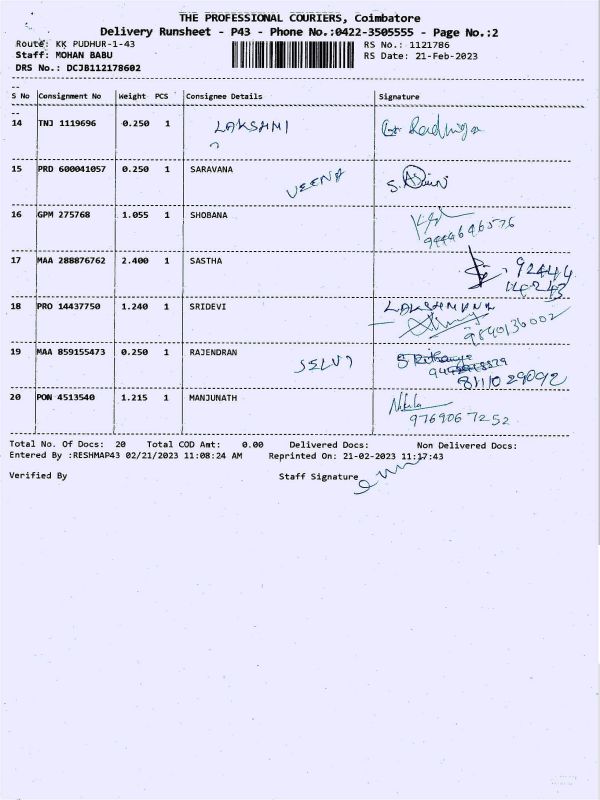 THE PROFESSIONAL COURIERS, Coimbatore
Delivery Runsheet - P43 - Phone No.:0422-3505555 - Page No.:2
Route: KK PUDHUR-1-43 RS No.: 1121786
Staff: MOHAN BABU RS Date: 21-Feb-2023
DRS No.: DCJB112178602
S No Consignment No Weight PCS Consignee Details Signature
14 TNJ 1119696 0.250 1 LAKSHMI
15 PRD 600041057 0.250 1 SARAVANA
VEENA
16 GPM 275768 1.055 1 SHOBANA
9444646576
17 MAA 288876762 2.400 1 SASTHA
92444
14243
18 PRO 14437750 1.240 1 SRIDEVI LAKSHMANA
9840136002
19 MAA 859155473 0.250 1 RAJENDRAN
SELVI
8111029092
20 PON 4513540 1.215 1 MANJUNATH
9769067252
Total No. Of Docs: 20 Total COD Amt: 0.00 Delivered Docs: Non Delivered Docs:
Entered By :RESHMAP43 02/21/2023 11:08:24 AM Reprinted On: 21-02-2023 11:17:43
Verified By Staff Signature